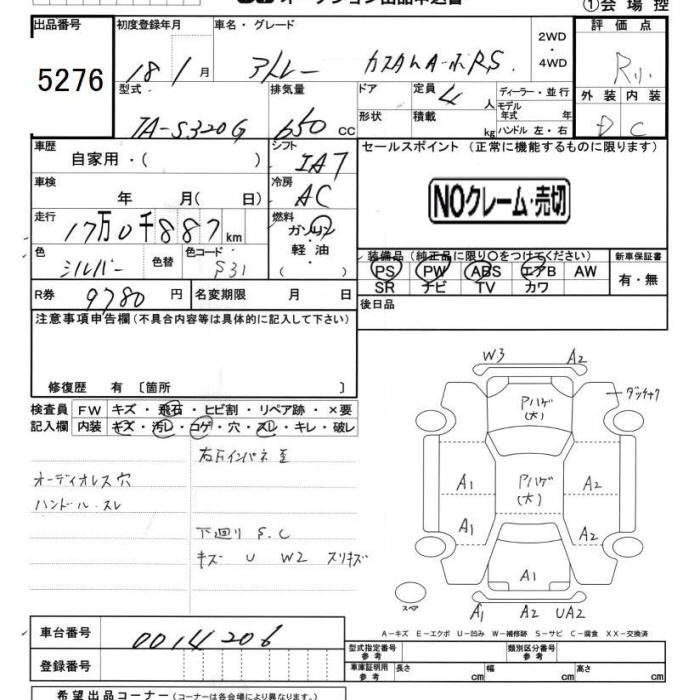 ①会場控
出品番号 初度登録年月 車名・グレード 評価点
5276 18 / 1 月 アトレー カスタムターボR.S. 2WD・4WD R小
型式 排気量 ドア 定員 4 人 ディーラー・並行 外装 内装
TA-S320G 650 cc 形状 積載 kg モデル年式 年 ハンドル 左・右 D C
車歴 自家用・( ) シフト IAT セールスポイント(正常に機能するものに限ります)
車検 年 月( 日) 冷房 AC NOクレーム・売切
走行 17万0千887km 燃料 ガソリン
軽油
( )
色 シルバー 色替 色コード S31 装備品(純正品に限り○をつけてください) 新車保証書
PS PW ABS エアB AW 有・無
SR ナビ TV カワ
R券 9780 円 名変期限 月 日 後日品
注意事項申告欄(不具合内容等は具体的に記入して下さい)
修復歴 有〔箇所 〕
検査員 FW キズ・飛石・ヒビ割・リペア跡・×要
記入欄 内装 キズ・汚レ・コゲ・穴・スレ・キレ・破レ
オーディオレス穴
ハンドル スレ
下廻り S.C
キズ U W2 スリキズ
W3 A2
Pハゲ(大) ダッチャク
A1 Pハゲ(大) A2
A1 A2
A1
スペア A1 A2 UA2
A-キズ E-エクボ U-凹み W-補修跡 S-サビ C-腐食 XX-交換済
車台番号 0014206
型式指定番号 参考 類別区分番号 参考
登録番号 車庫証明用 参考 長さ cm 幅 cm 高さ cm
希望出品コーナー(コーナーは各会場により異なります。)